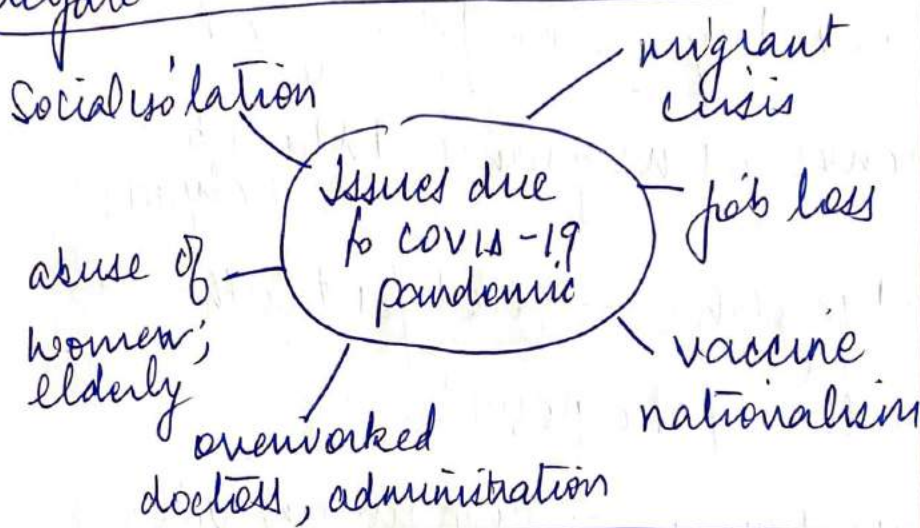 Social isolation
migrant
crisis
Issues due
to COVID-19
pandemic
job loss
abuse of
women;
elderly
vaccine
nationalism
overworked
doctors, administration